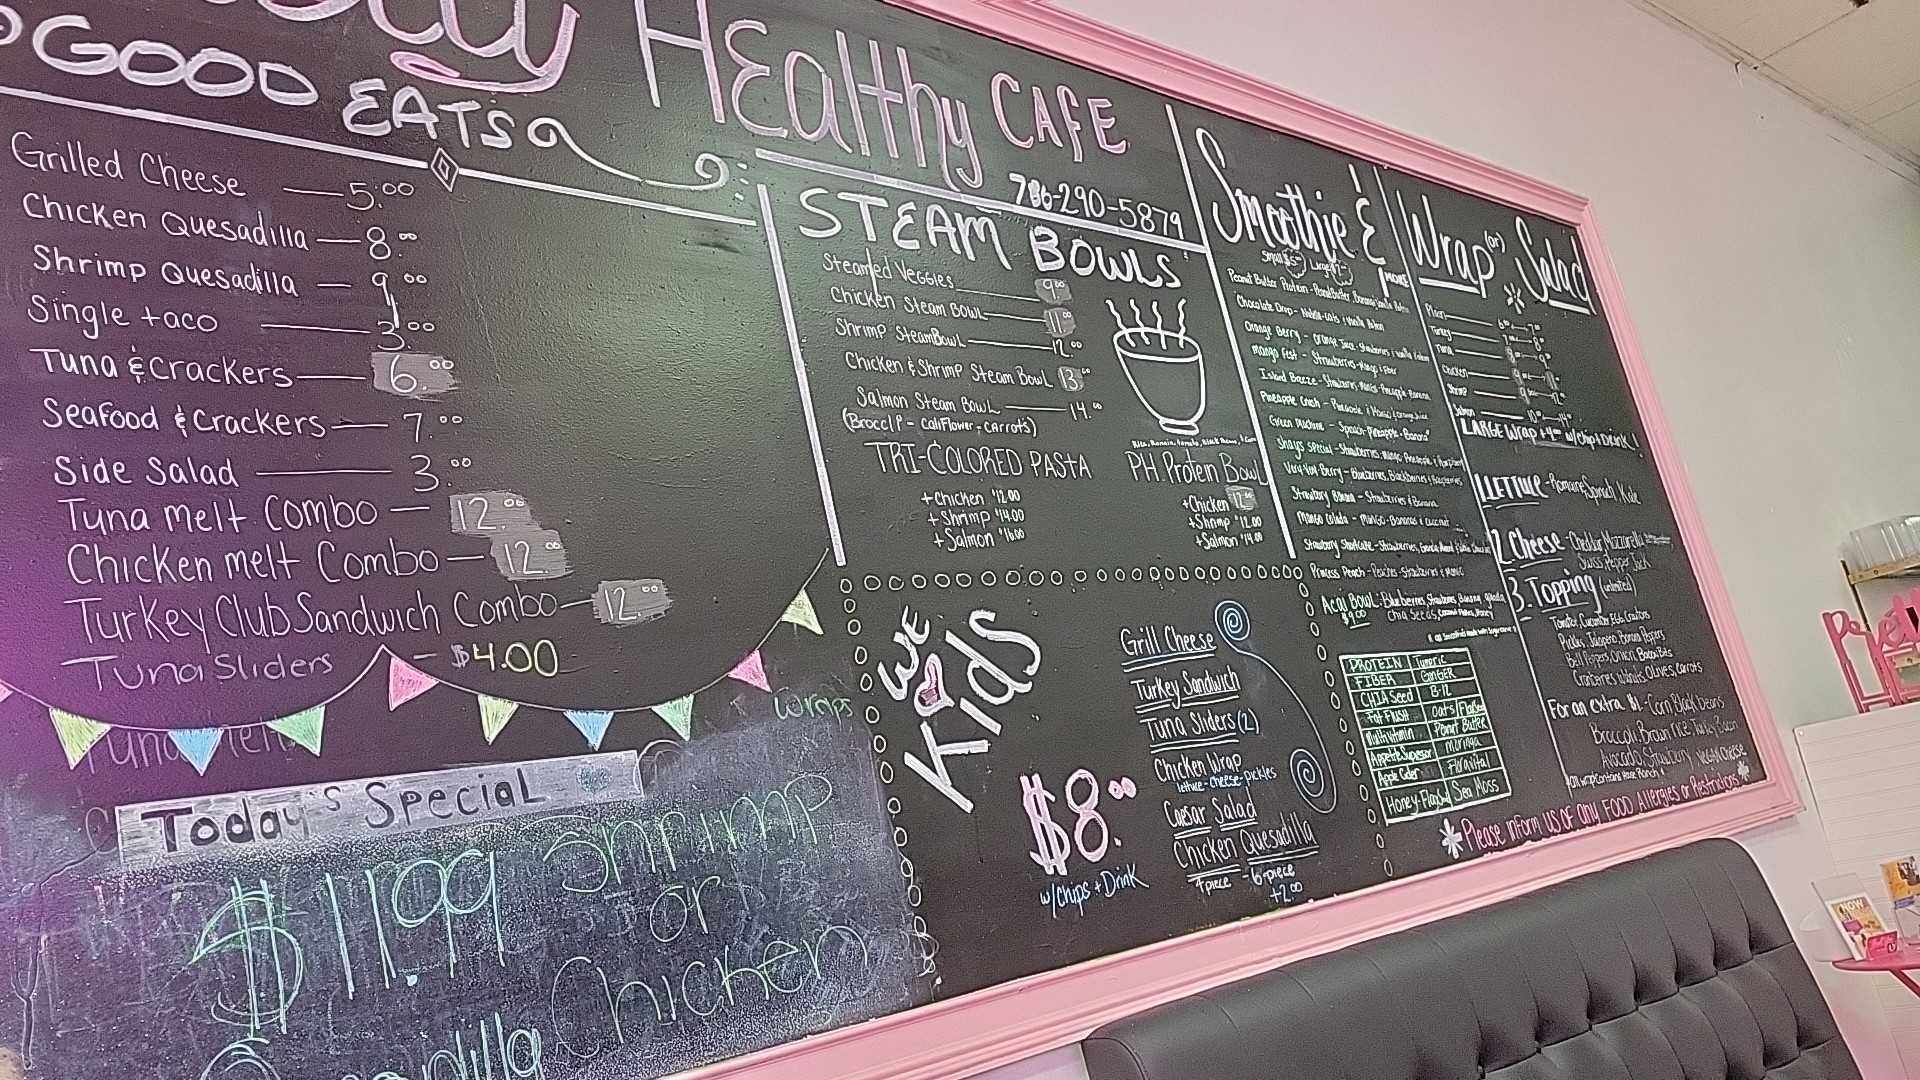 Healthy CAFE
GOOD EATS
786-290-5879
Grilled Cheese 5.00
Chicken Quesadilla 8.00
Shrimp Quesadilla 9.00
Single taco 3.00
Tuna & Crackers 6.00
Seafood & Crackers 7.00
Side Salad 3.00
Tuna melt Combo 12.00
Chicken melt Combo 12.00
Turkey Club Sandwich Combo 12.00
Tuna Sliders - $4.00
Wraps
Today's Special
$11.99 Shrimp
or
Chicken
STEAM BOWLS
Steamed Veggies 9.00
Chicken Steam Bowl 11.00
Shrimp Steam Bowl 12.00
Chicken & Shrimp Steam Bowl 13.00
Salmon Steam Bowl 14.00
TRI-COLORED PASTA
+Chicken $12.00
+Shrimp $14.00
+Salmon $16.00
PH Protein Bowl
+Chicken 12.00
+Shrimp $12.00
+Salmon $14.00
WE
Kids
$8.00
w/chips + Drink
Grill Cheese
Turkey Sandwich
Tuna Sliders (2)
Chicken Wrap
lettuce-cheese-pickles
Caesar Salad
Chicken Quesadilla
4piece - 6-piece
+2.00
Smoothie &
MORE
Small $5 Large $7
Peanut Butter Protein - Peanut Butter, Banana,
Chocolate Drop -
Orange Berry - Orange Juice - Strawberries
Mango Fest - Strawberries - Mango
Island Breeze - Strawberries, Mango - Pineapple - Banana
Pineapple Crush - Pineapple
Green Machine - Spinach - Pineapple - Banana
Shay's special - Strawberries, Mango, Pineapple
Very Very Berry - Blueberries, Blackberries & Raspberries
Strawberry Banana - Strawberries & Banana
Mango Colada - Mango - Bananas & coconut
Strawberry Shortcake - Strawberries,
Princess Peach - Peaches - Strawberries & Mango
Acai Bowl: Blueberries, Strawberries, Banana, granola
$9.00 Chia Seeds, Coconut Flakes, Honey
PROTEIN Tumeric
FIBER GINGER
CHIA Seed B-12
Fat Flush Oats
Multivitamin Peanut Butter
Appetite Moringa
Apple Cider
Honey- Sea Moss
Wrap (or) Salad
Plain
Turkey
Tuna
Chicken
Shrimp
Salmon
LARGE Wrap + 4.00 w/chip & Drink!
1. LETTUCE - Romaine, Spinach, Kale
2. Cheese - Cheddar, Mozzarella,
Swiss, Pepper Jack
3. Topping (unlimited)
Tomatoe, Cucumber, Egg, Croutons
Pickles, Jalapeno, Banana Peppers
Bell Peppers, Onion, Bacon Bits
Cranberries, walnuts, Olives, Carrots
For an extra $1 - Corn, Black beans
Broccoli, Brown rice, Turkey Bacon
Avocado, Strawberry Vegan Cheese
Please inform us of any FOOD Allergies or Restrictions
NOW